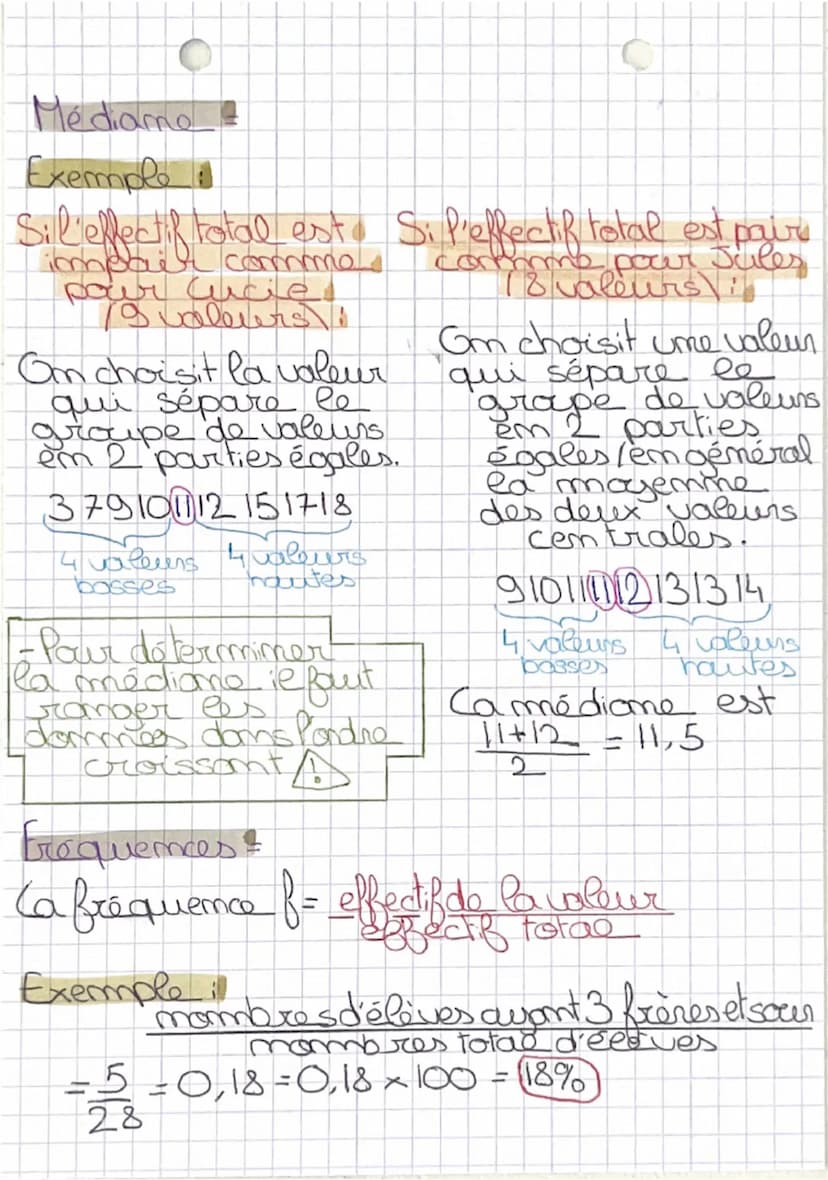 Médiane =
Exemple :
Si l'effectif total est
impair comme
pour Lucie
(9 valeurs) :
On choisit la valeur
qui sépare le
groupe de valeurs
en 2 parties égales.
3 7 9 10 11 12 15 17 18
4 valeurs basses
4 valeurs hautes
- Pour déterminer
la médiane il faut
ranger les
données dans l'ordre
croissant !
Si l'effectif total est pair
comme pour Jules
(8 valeurs) :
On choisit une valeur
qui sépare le
groupe de valeurs
en 2 parties
égales (en général
la moyenne
des deux valeurs
centrales.
9 10 11 11 12 13 13 14
4 valeurs basses
4 valeurs hautes
La médiane est
11+12 / 2 = 11,5
Fréquences =
La fréquence f = effectif de la valeur / effectif total
Exemple :
nombres d'élèves ayant 3 frères et sœur
nombres total d'élèves
= 5/28 = 0,18 = 0,18 × 100 = 18%